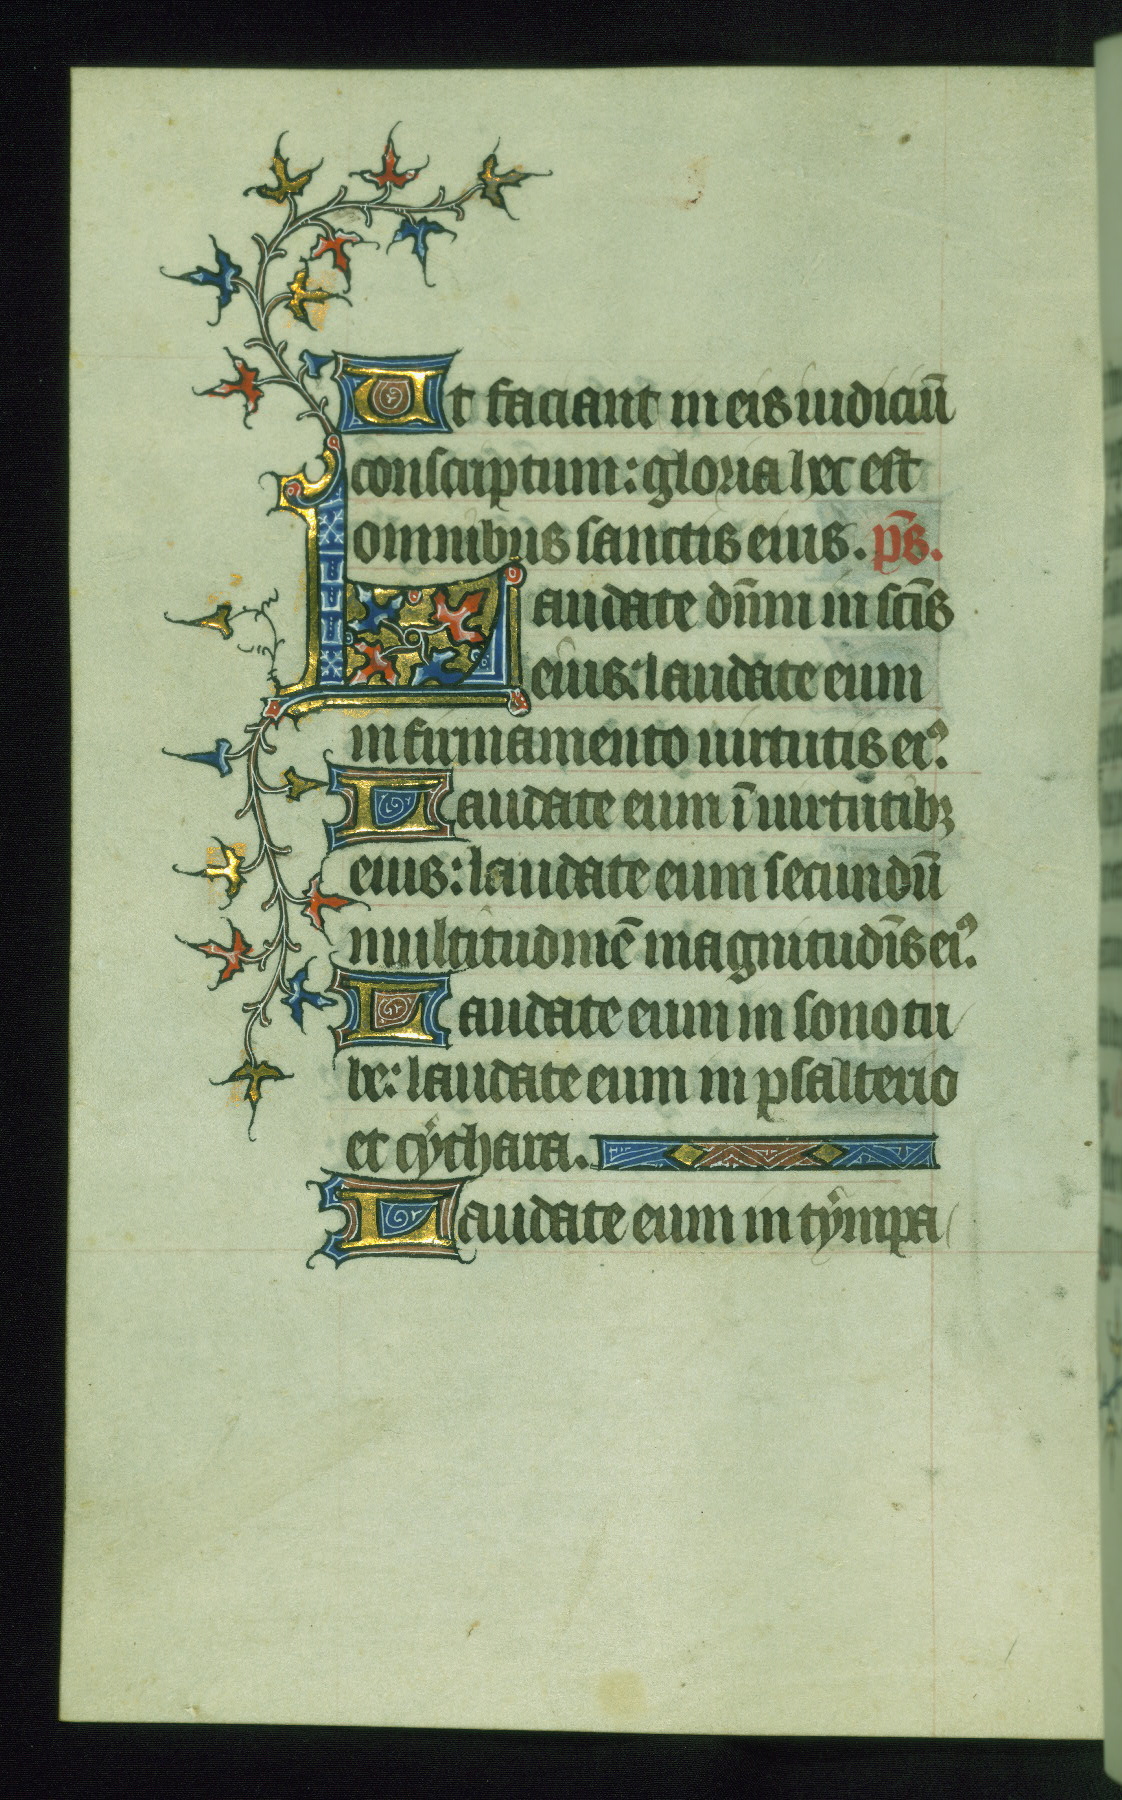 Ut faciant in eis iudiciū
conscriptum: gloria hec est
omnibus sanctis eius. p̄s.
Laudate dn̄m in sc̄is
eius: laudate eum
in firmamento uirtutis eiꝰ.
Laudate eum ī uirtutibꝫ
eius: laudate eum secundū
multitudinē magnitudīs eiꝰ.
Laudate eum in sono tu
be: laudate eum in psalterio
et cythara.
Laudate eum in tympa